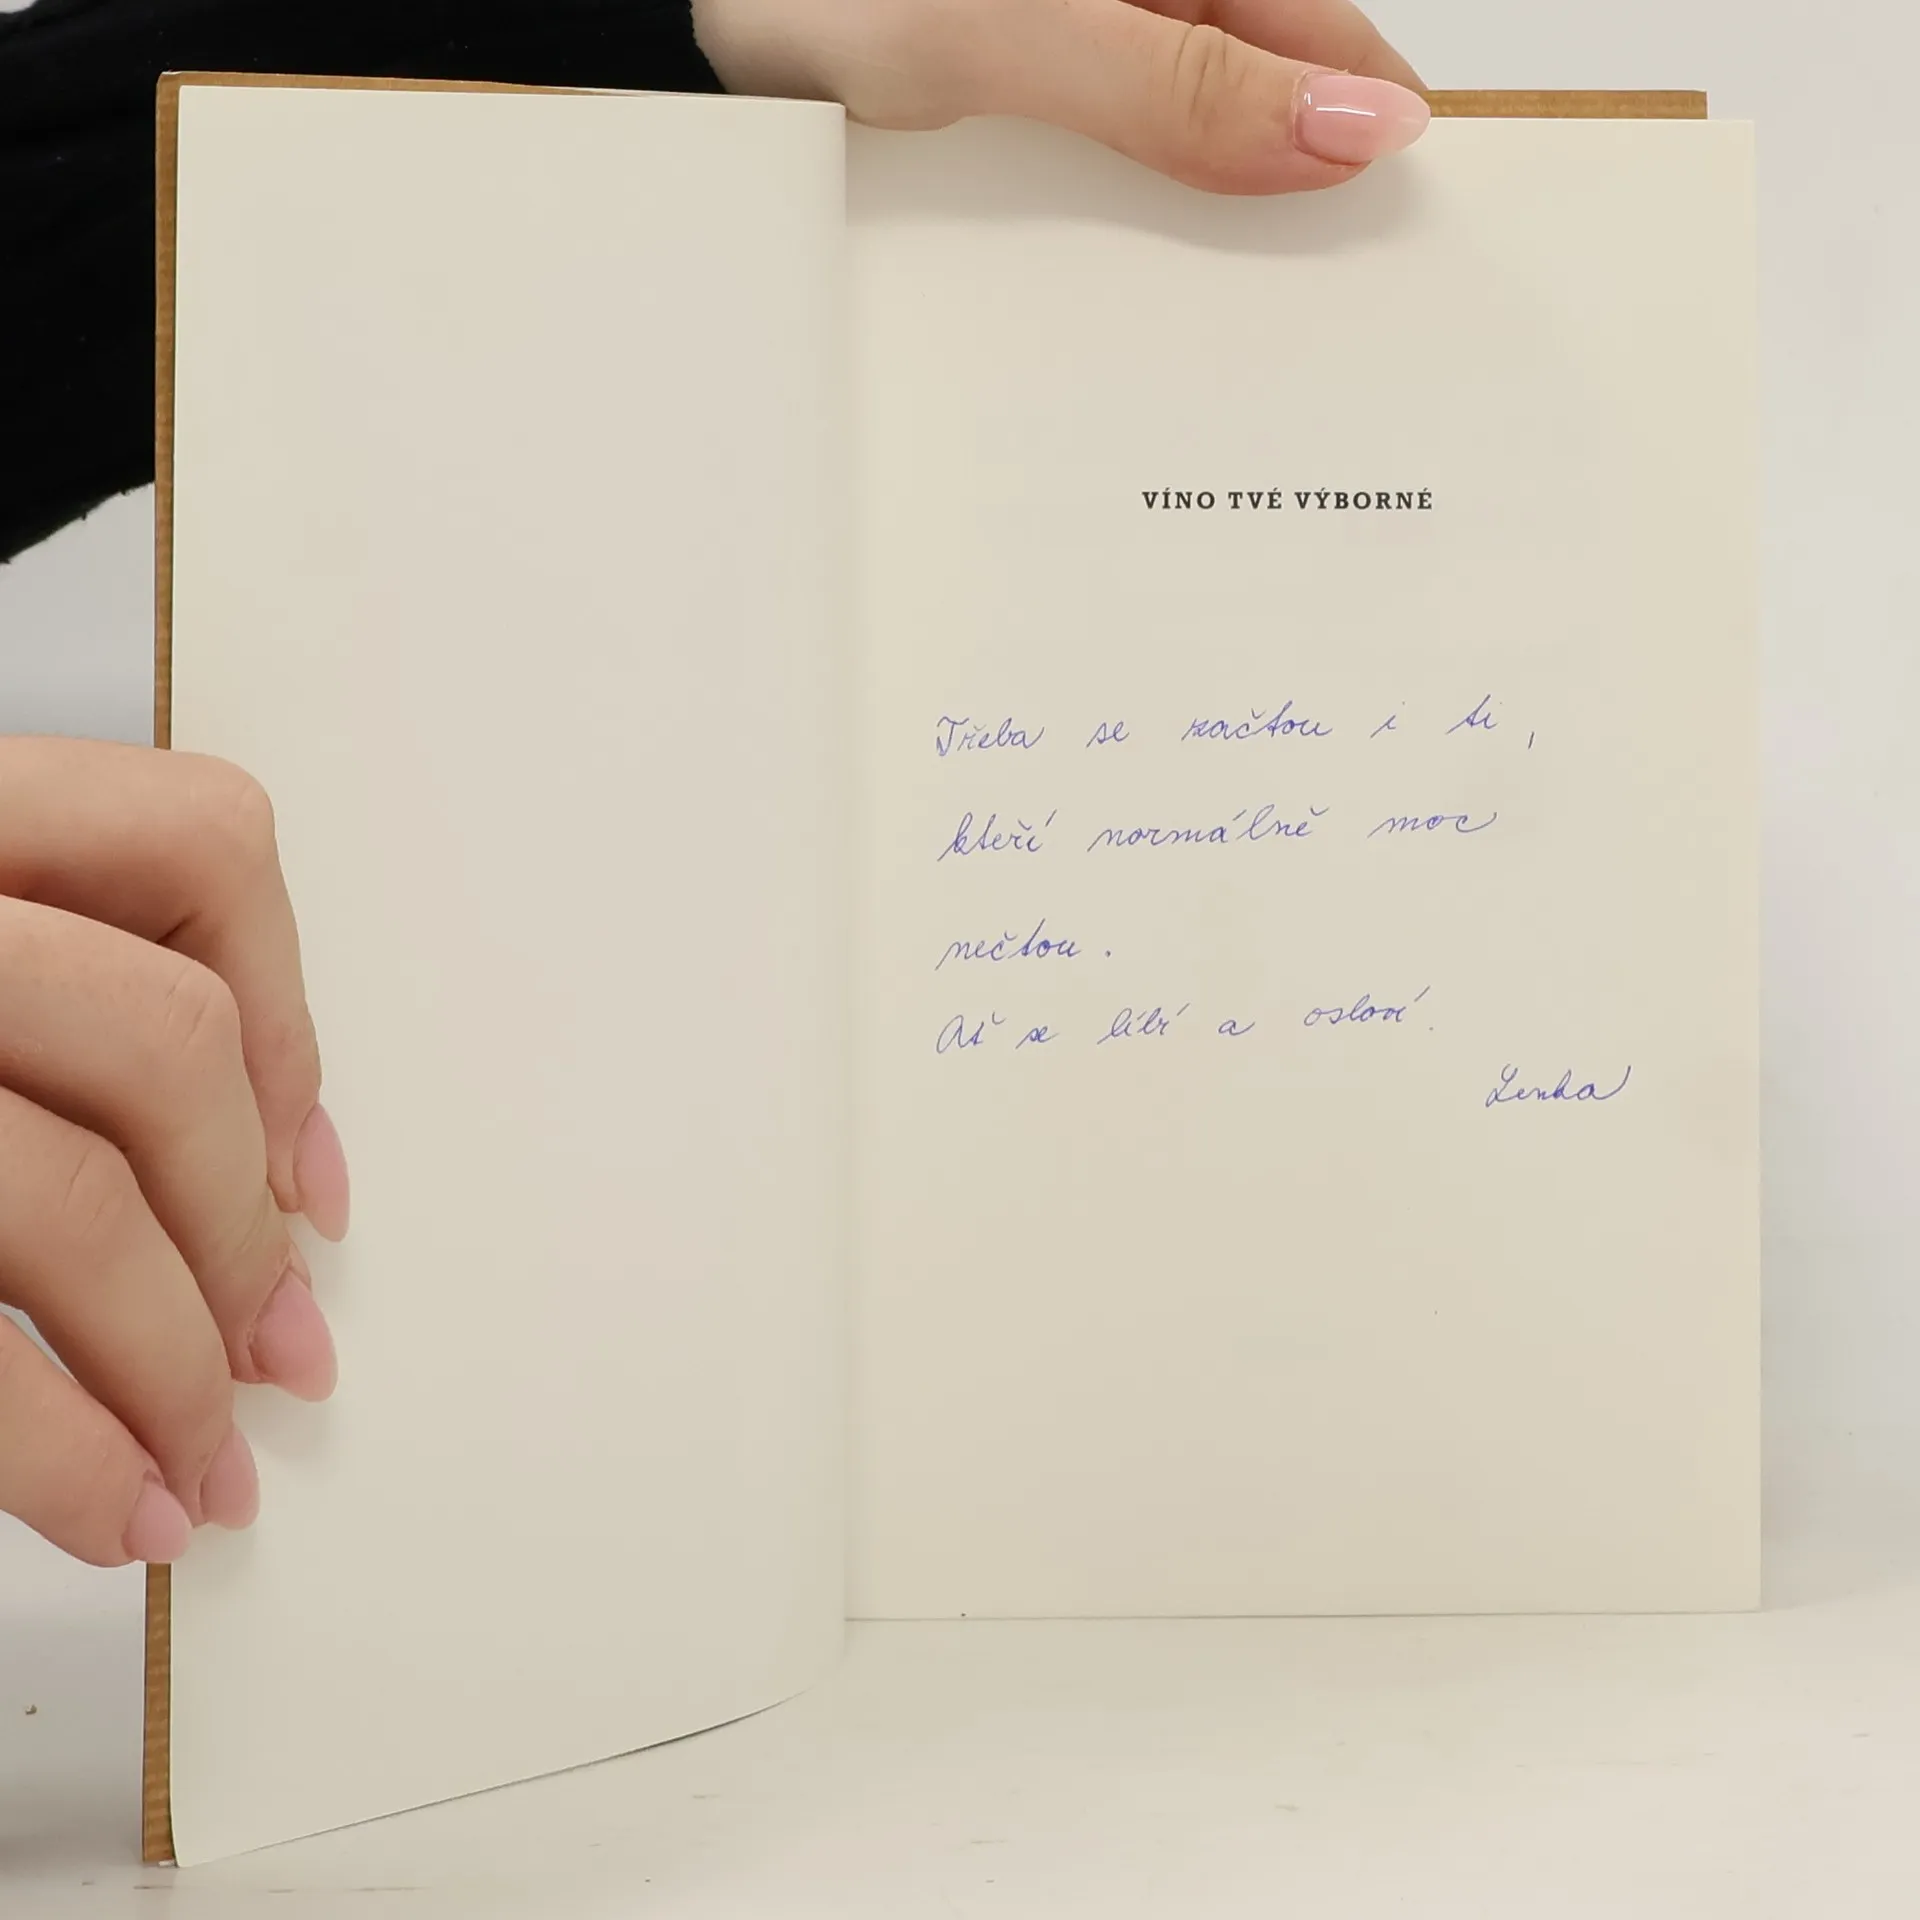 VÍNO TVÉ VÝBORNÉ
Třeba se začtou i ti,
kteří normálně moc
nečtou.
Ať se líbí a osloví.
Lenka